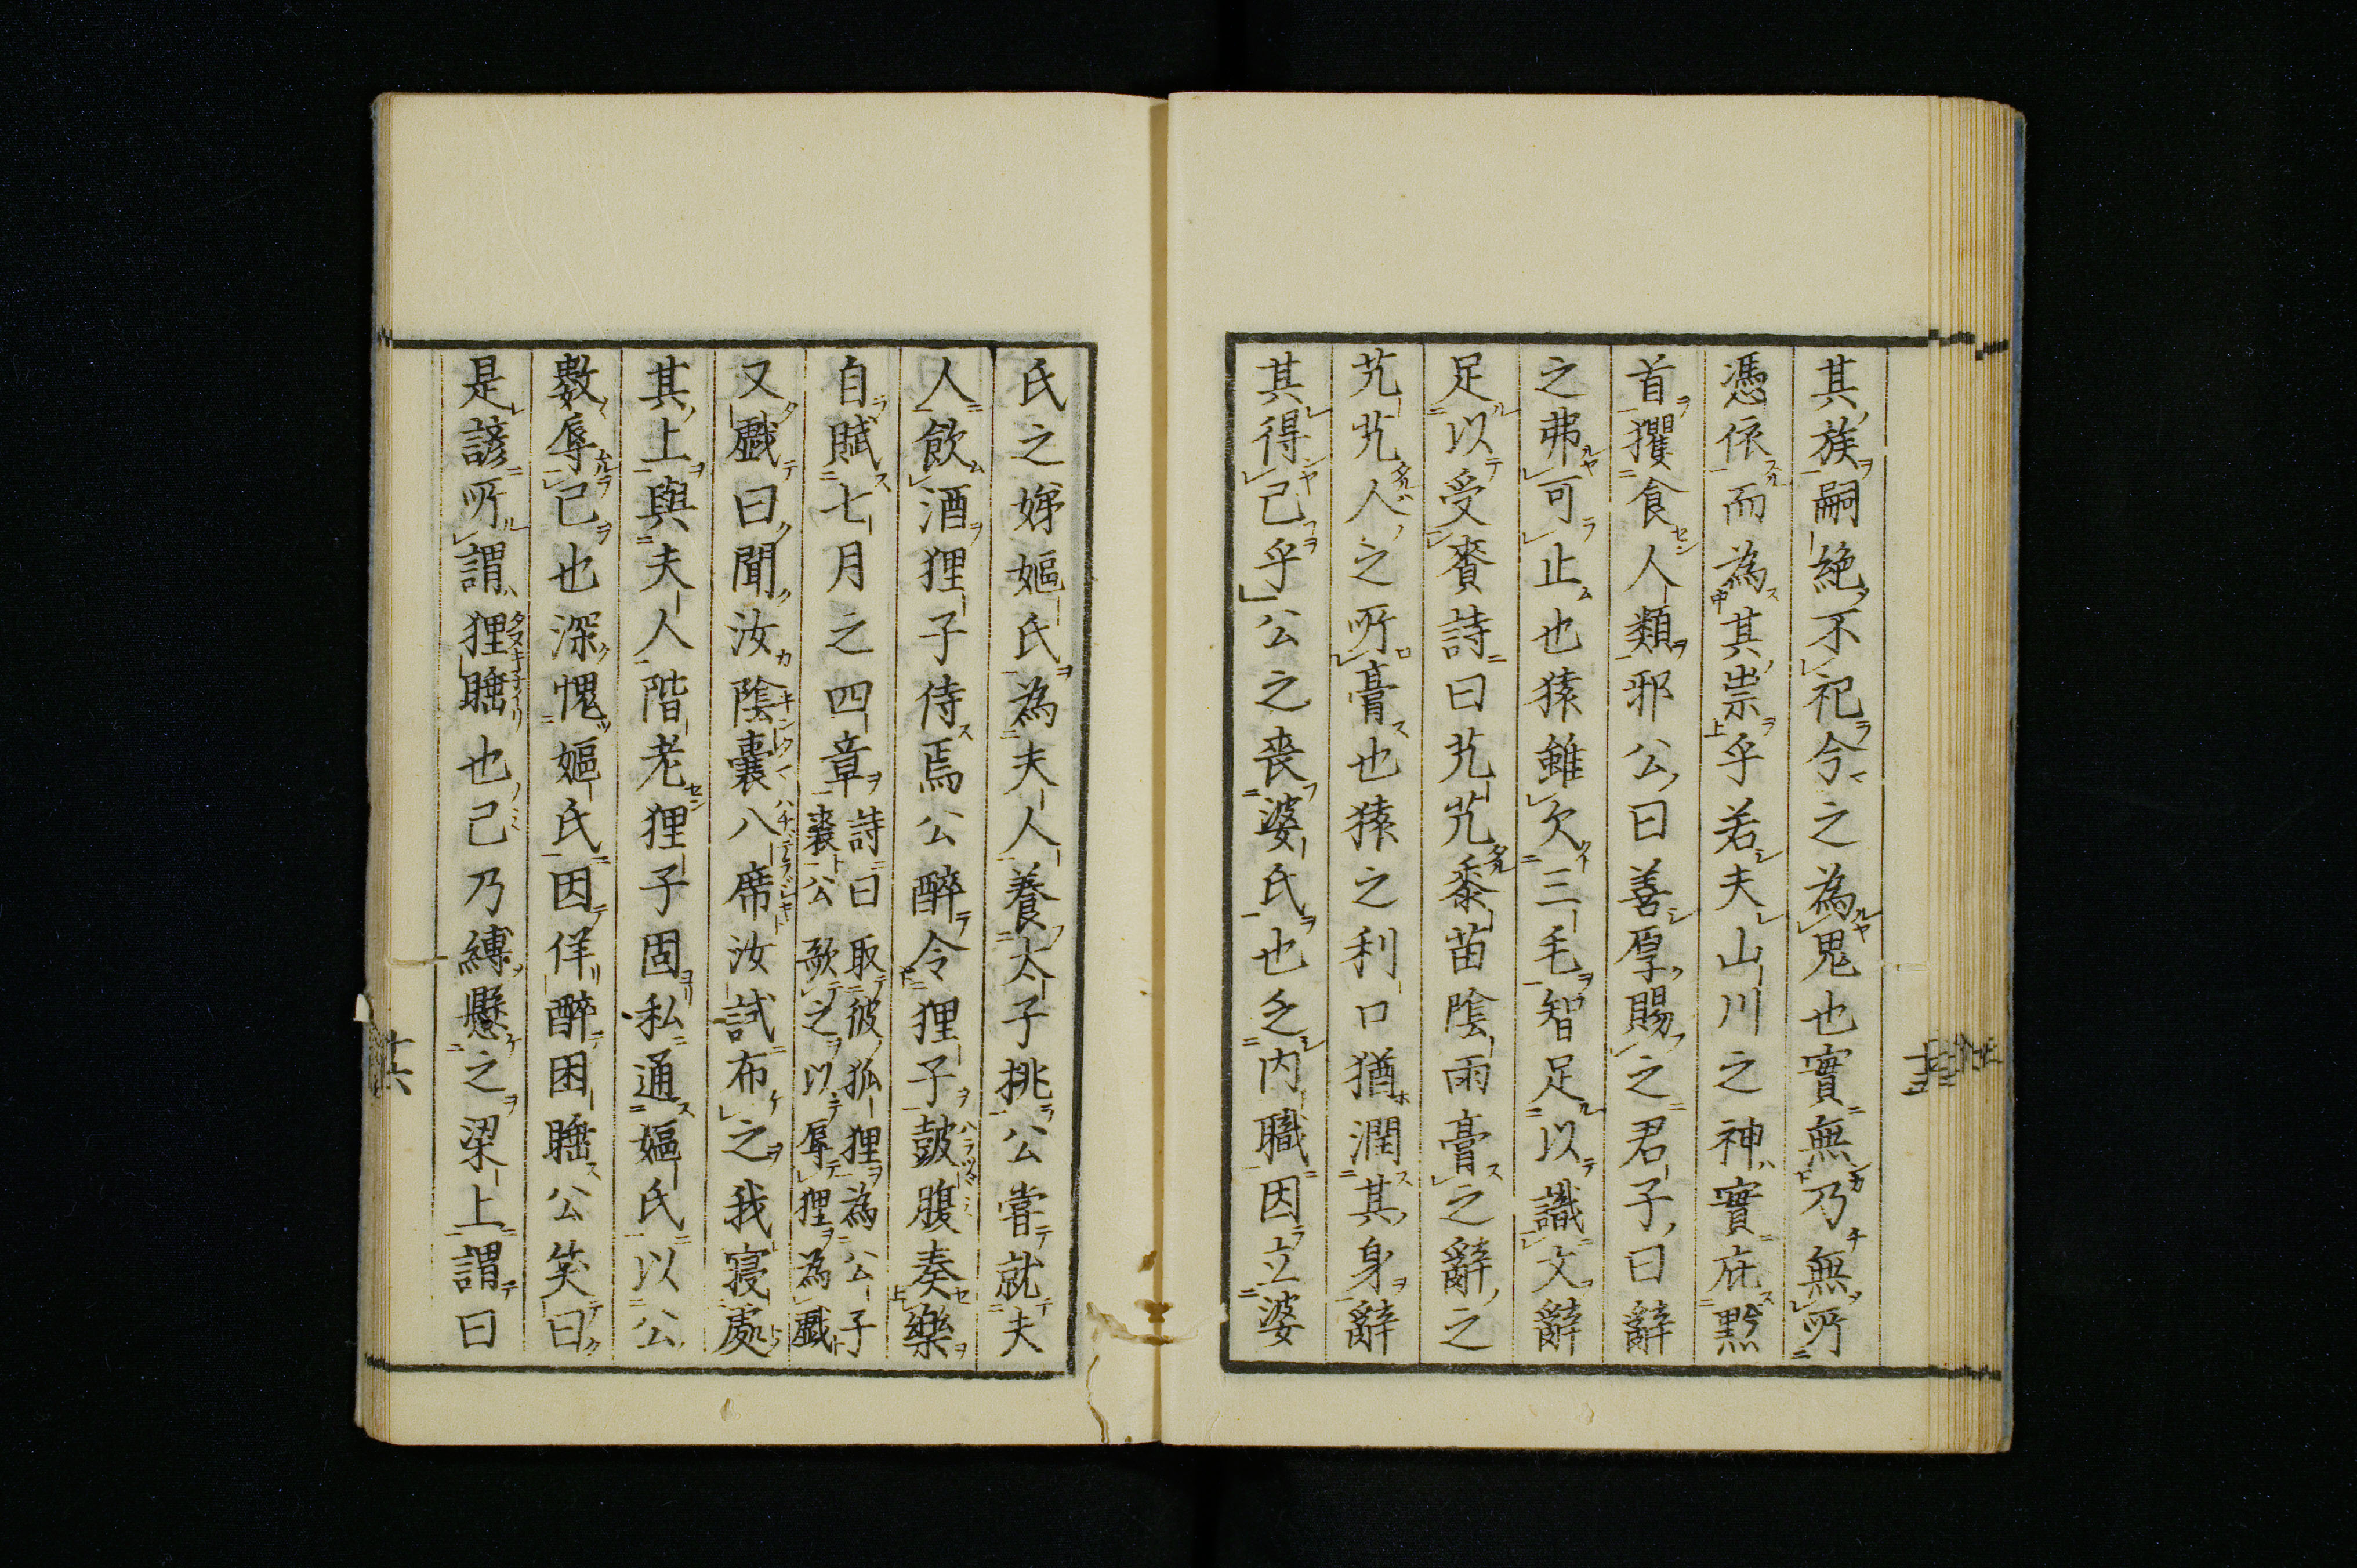 其族嗣絶不祀今之為鬼也實無乃無所
憑依而為其祟乎若夫山川之神實庇黔
首玃食人類邪公曰善厚賜之君子曰辭
之弗可止也猿雖欠三毛智足以識文辭
足以受賚詩曰芃芃黍苗陰雨膏之辭之
芃芃人之所膏也猿之利口猶潤其身辭
其得已乎公之喪婆氏也乏内職因立婆
氏之娣嫗氏為夫人養太子挑公嘗就夫
人飲酒狸子侍焉公醉令狸子鼓腹奏樂
自賦七月之四章詩曰取彼狐狸為公子
裘公歌之以辱狸為戯
又戯曰聞汝陰囊八席汝試布之我寝處
其上與夫人階老狸子固私通嫗氏以公
數辱己也深愧嫗氏因佯醉困睡公笑曰
是諺所謂狸睡也己乃縛懸之梁上謂曰
十六